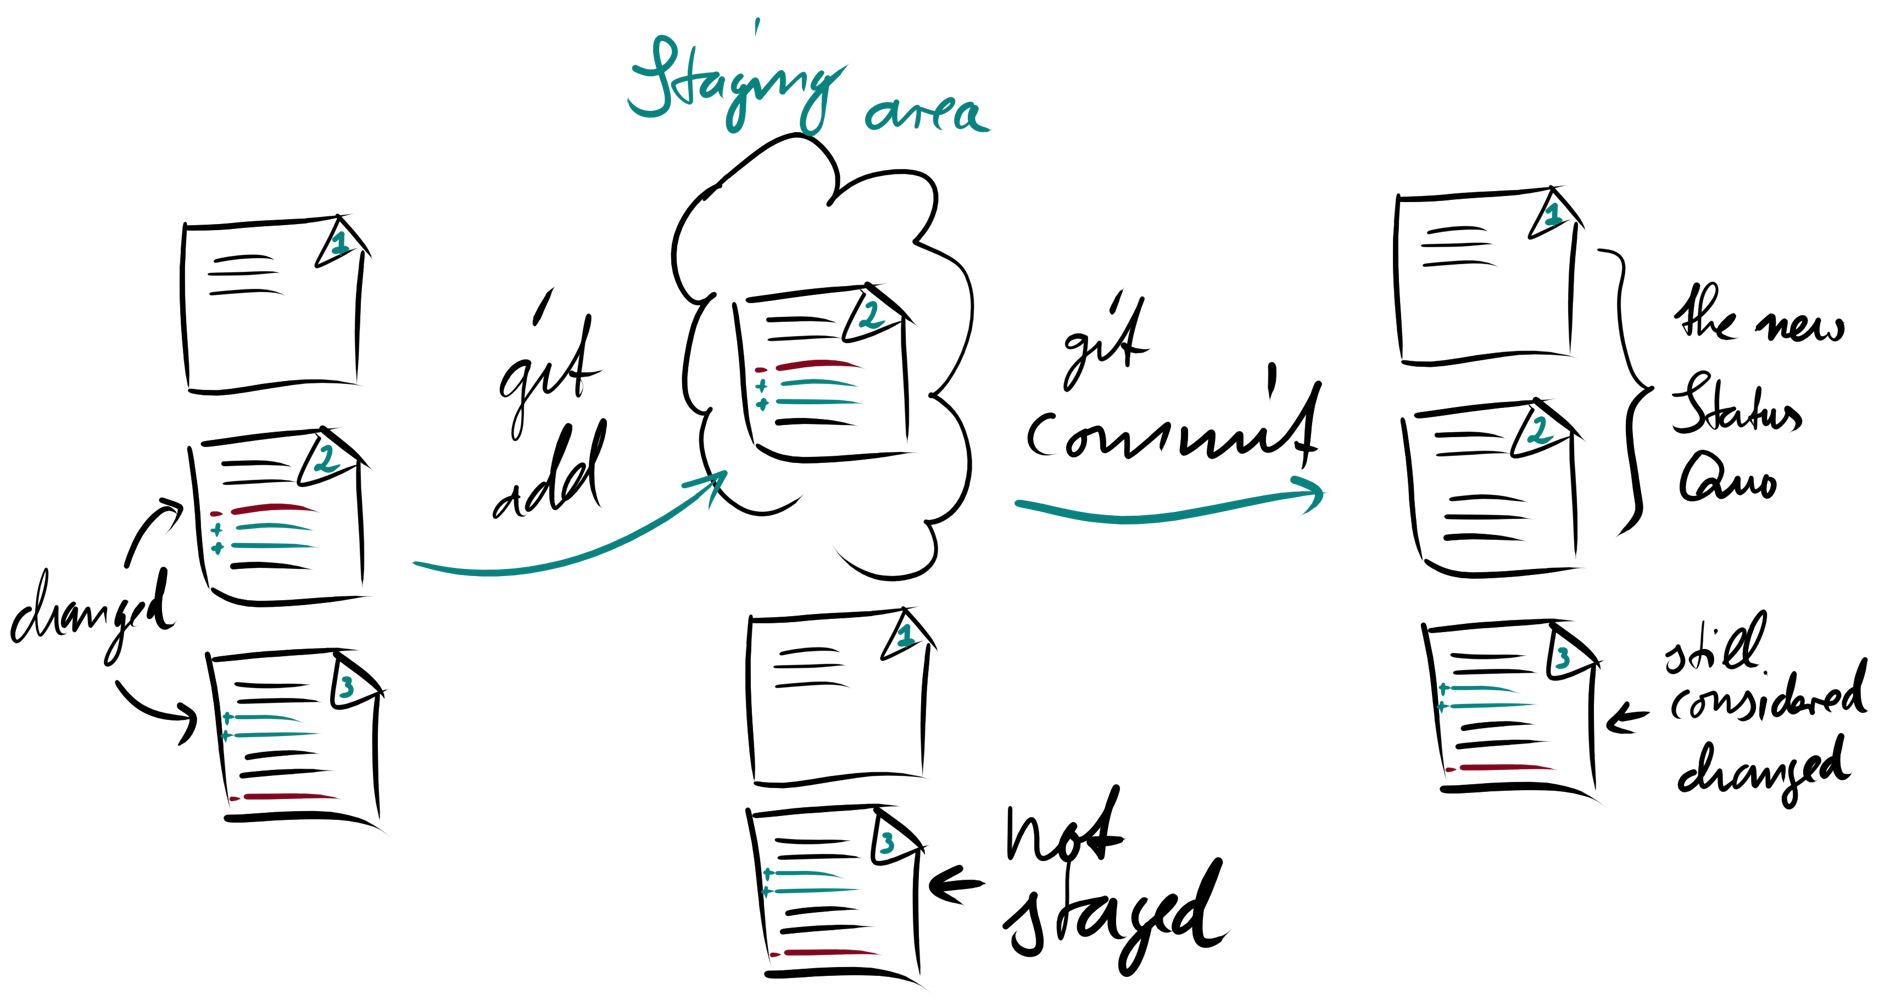 Staging area
1
2
3
changed
git
add
2
1
3
not
staged
git
commit
1
2
3
the new
Status
Quo
still
considered
changed